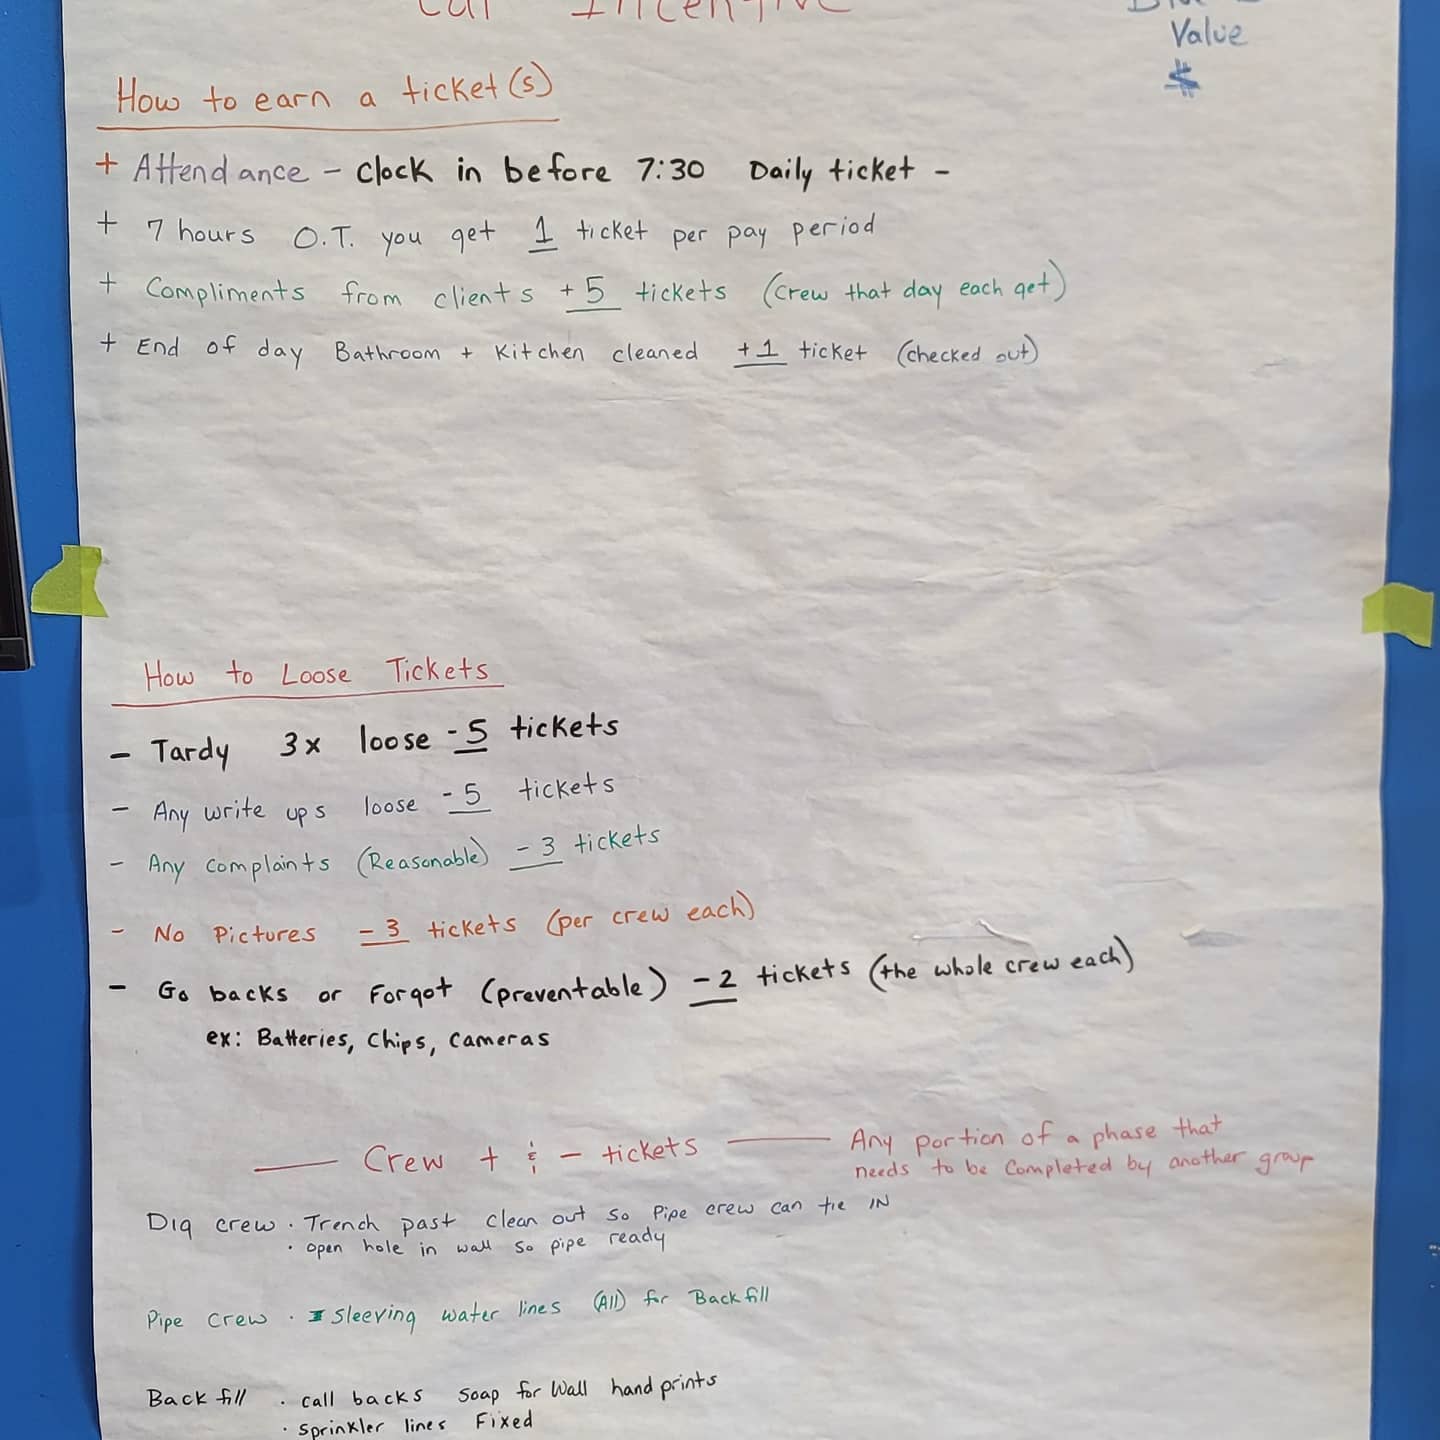 Car Incentive
Value
$
How to earn a ticket(s)
+ Attendance - Clock in before 7:30 Daily ticket -
+ 7 hours O.T. you get 1 ticket per pay period
+ Compliments from clients +5 tickets (crew that day each get)
+ End of day Bathroom + Kitchen cleaned +1 ticket (checked out)
How to Loose Tickets
- Tardy 3x loose -5 tickets
- Any write ups loose -5 tickets
- Any complaints (Reasonable) -3 tickets
- No Pictures -3 tickets (per crew each)
- Go backs or Forgot (preventable) -2 tickets (the whole crew each)
ex: Batteries, Chips, Cameras
Crew + & - tickets — Any portion of a phase that
needs to be completed by another group
Dig crew · Trench past clean out so Pipe crew can tie IN
· open hole in wall so pipe ready
Pipe crew · Sleeving water lines (All) for Backfill
Back fill · call backs soap for Wall hand prints
· Sprinkler lines Fixed